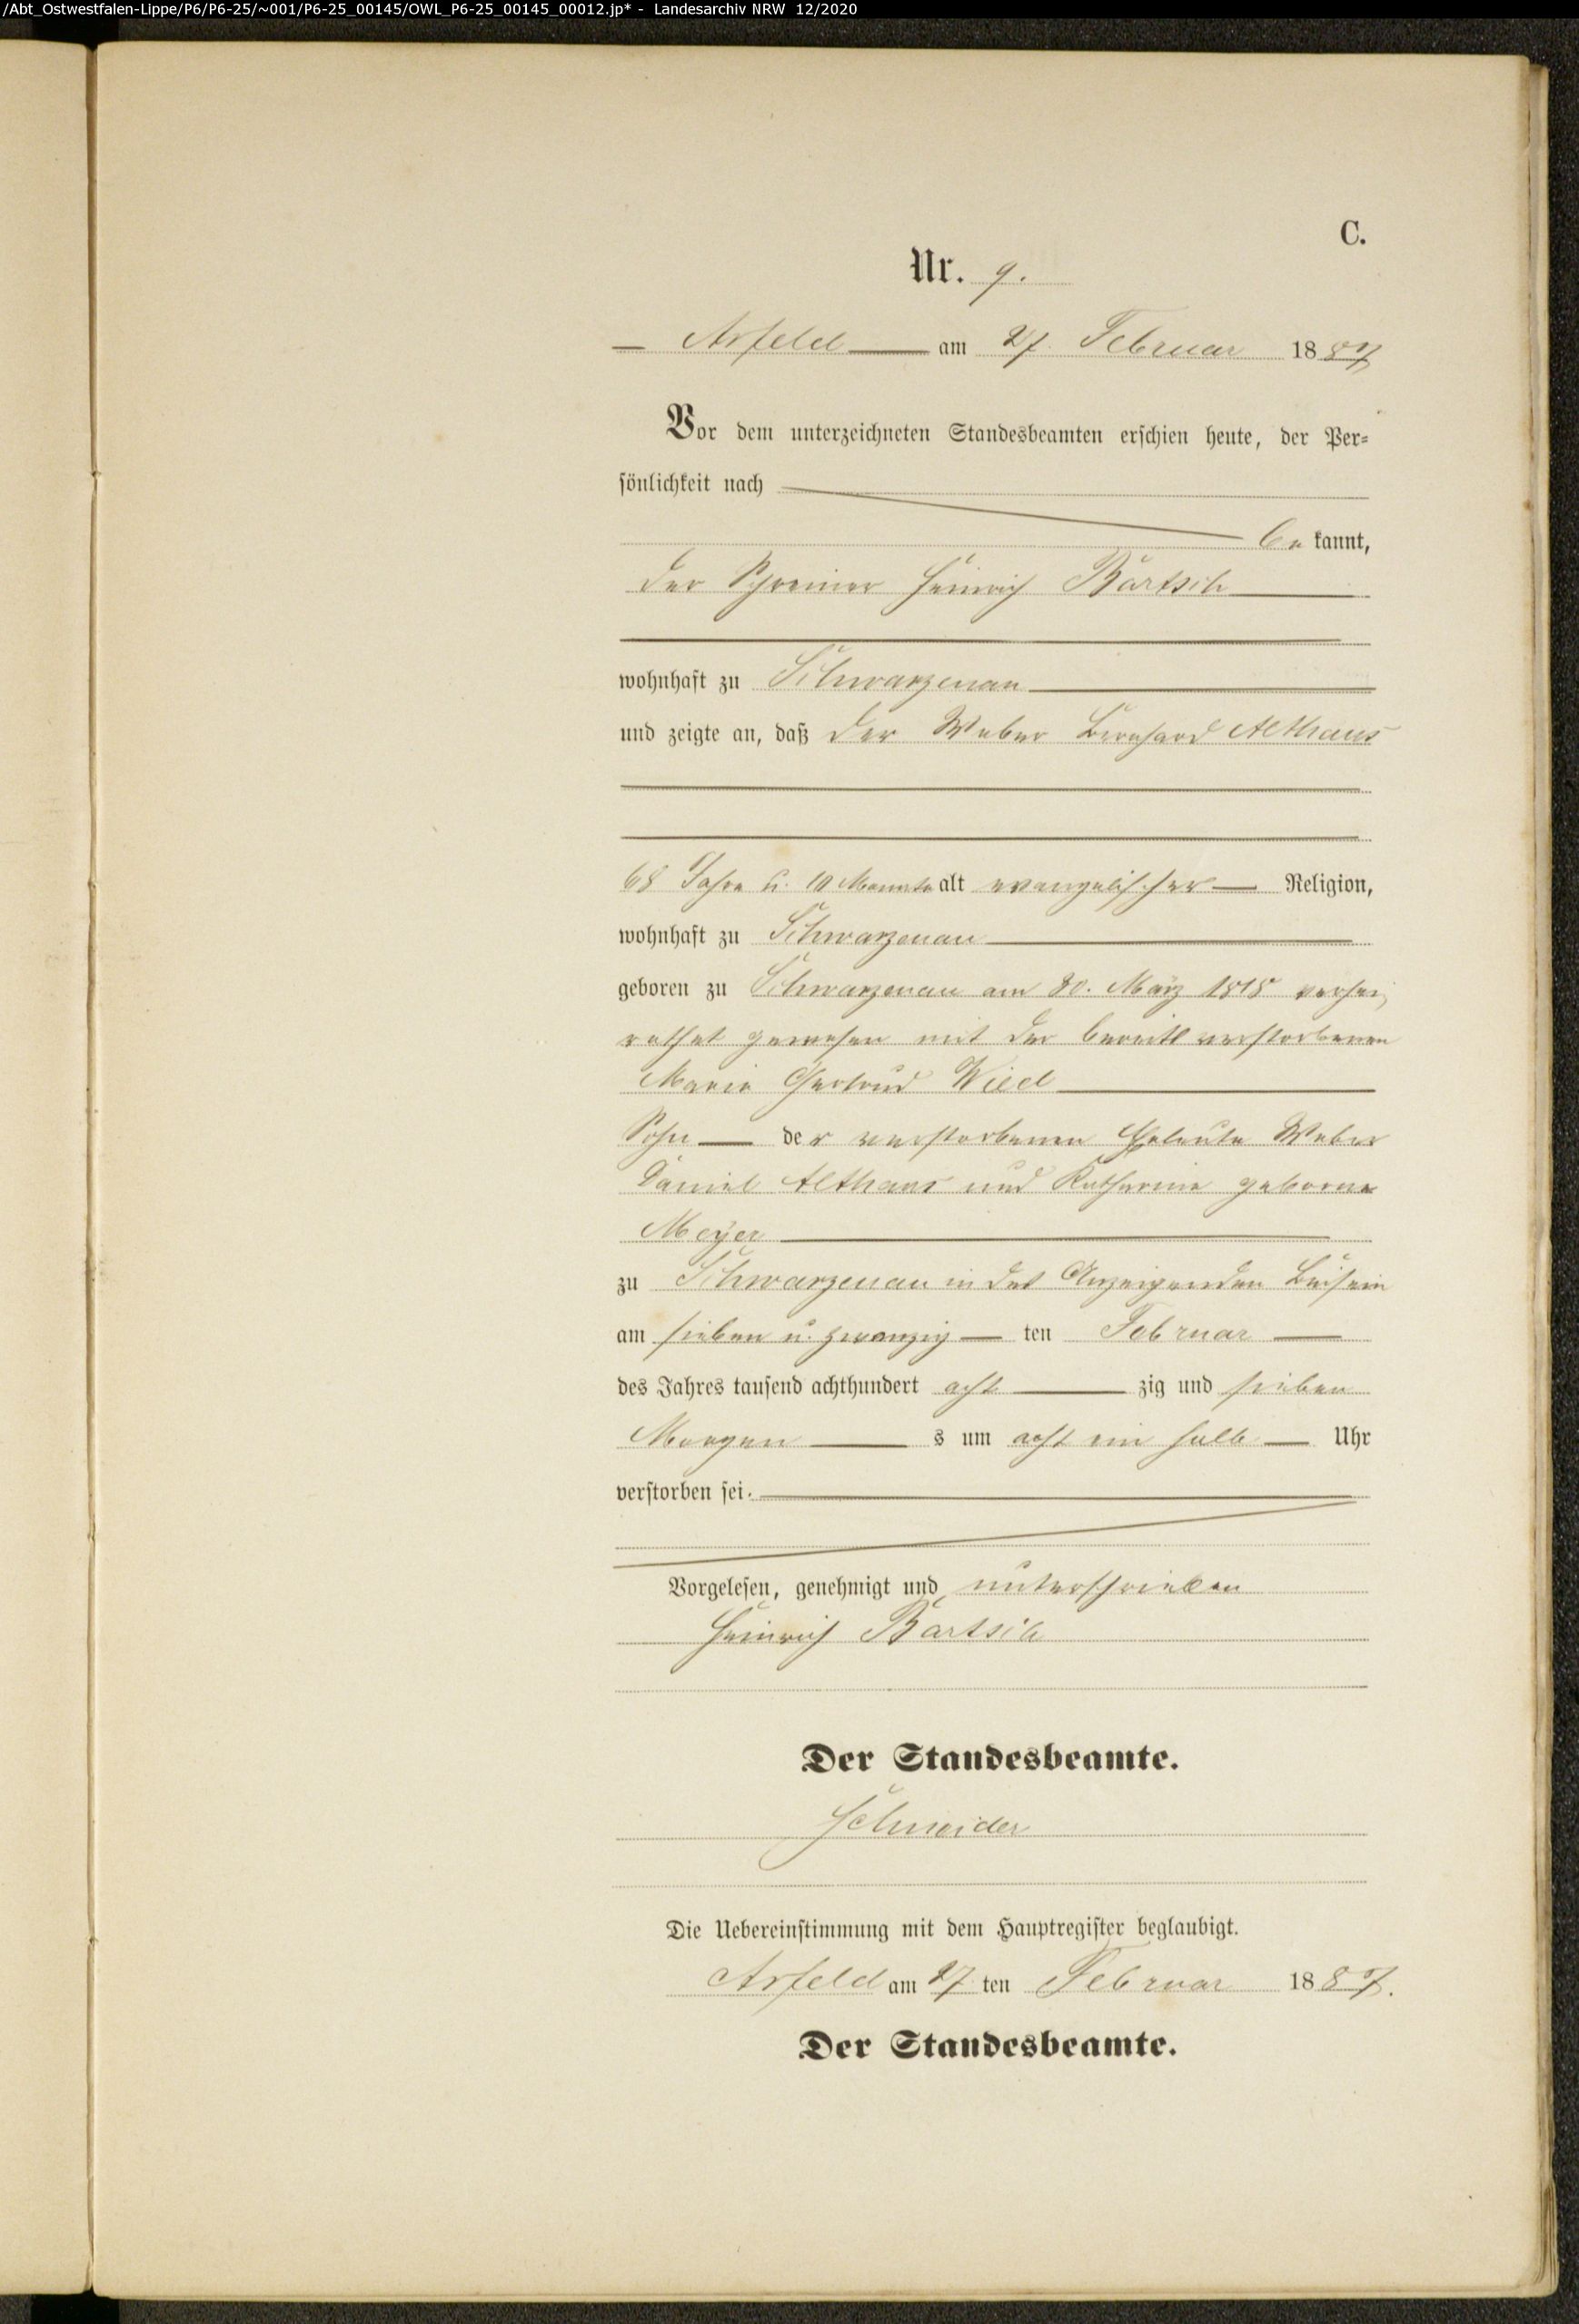 /Abt_Ostwestfalen-Lippe/P6/P6-25/~001/P6-25_00145/OWL_P6-25_00145_00012.jp* - Landesarchiv NRW 12/2020
C.
Nr. 9.
Arfeld am 27. Februar 1887
Vor dem unterzeichneten Standesbeamten erschien heute, der Per-
sönlichkeit nach
be kannt,
der Schreiner Heinrich Bartsch
wohnhaft zu Schwarzenau
und zeigte an, daß der Weber Bernhard Althaus
68 Jahre u. 10 Monate alt evangelischer Religion,
wohnhaft zu Schwarzenau
geboren zu Schwarzenau am 30. März 1818 verhei-
rathet gewesen mit der bereits verstorbenen
Maria Gertrud Wied
Sohn der verstorbenen Eheleute Weber
Daniel Althaus und Katharine geborne
Meyer
zu Schwarzenau in des Anzeigenden Beisein
am sieben u. zwanzig ten Februar
des Jahres tausend achthundert acht zig und sieben
Morgen s um acht ein halb Uhr
verstorben sei.
Vorgelesen, genehmigt und unterschrieben
Heinrich Bartsch
Der Standesbeamte.
Schneider
Die Uebereinstimmung mit dem Hauptregister beglaubigt.
Arfeld am 27 ten Februar 1887.
Der Standesbeamte.